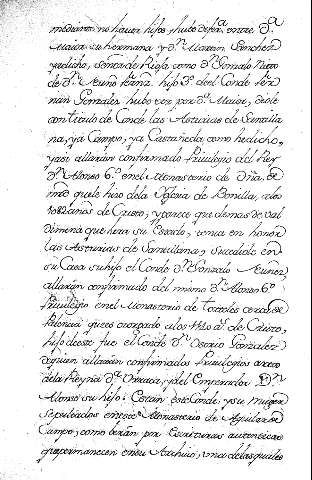 med iaron no haver hijos, hubo difer.ª entre D.ª
Maior su hermana y D.ⁿ Martin Sanchez
yedicho, señor de Rioja como D.ⁿ Gonzalo Nieto
de D.ⁿ Nuño hijo 3.º del Conde
nan Gonzalez hubo voz por D.ª Maior, dióle
contitulo de Conde las Asturias de Santilla
na, y a Campo, y a Castañeda como he dicho,
y assi allarán confirmado Privilegio del Rey
D.ⁿ Alonso 6.º en el Monasterio de Oña, de
md que le hizo dela Iglesia de Bonilla, alos
1082 años de Cristo, y parece que demas de Val
domena que hera su Estado, tenia en honor
las Asturias de Santillana, sucedióle en
su Casa su hijo el Conde D.ⁿ Gonzalo Nuñez
allarán confirmado del mismo D.ⁿ Alonso 6.º
Privilegio en el Monasterio de cerca de
Palencia que es otorgado alos 1140 a.ˢ de Cristo,
hijo deeste fue el Conde D.ⁿ Osorio Gonzalez
de quien allarán confirmados Privilegios acerca
dela Reyna D.ª Urraca, y del Emperador D.ⁿ
Alonso su hijo: Están este Conde, y su muger
sepultados eneste Monasterio de Aguilar de
Campo, como verán por Escrituras autenticas
que permanecen ensu Archivo, una delas quales